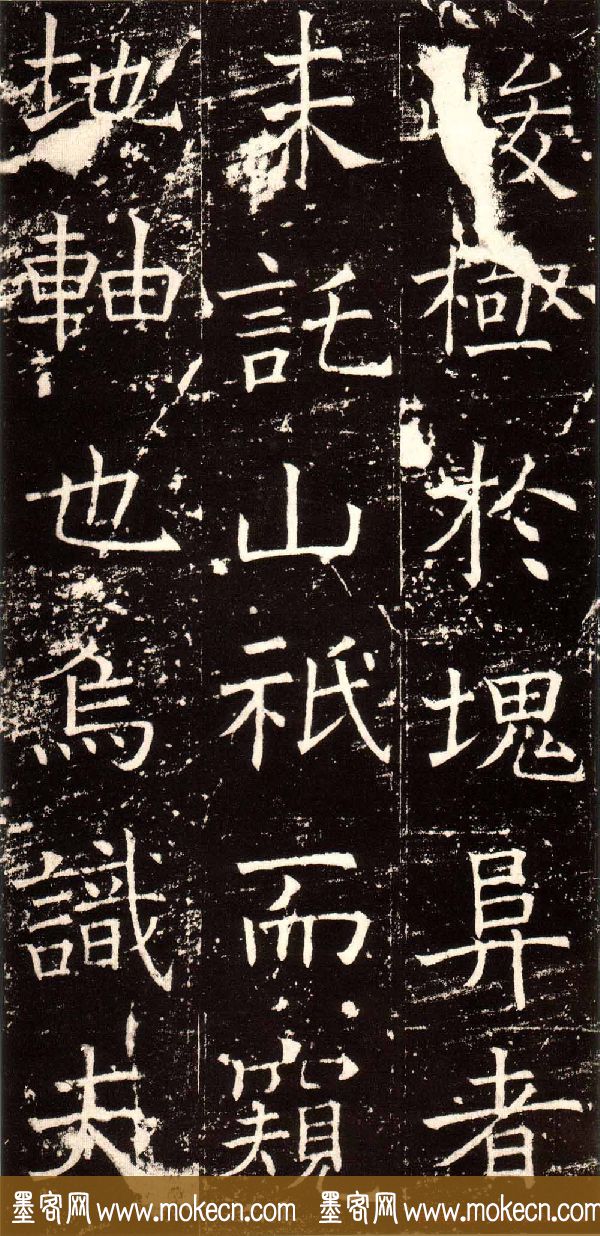 峻極於塊阜者
未託山祇而窺
地軸也烏識夫
墨客网 www.mokecn.com 墨客网 www.mokecn.com